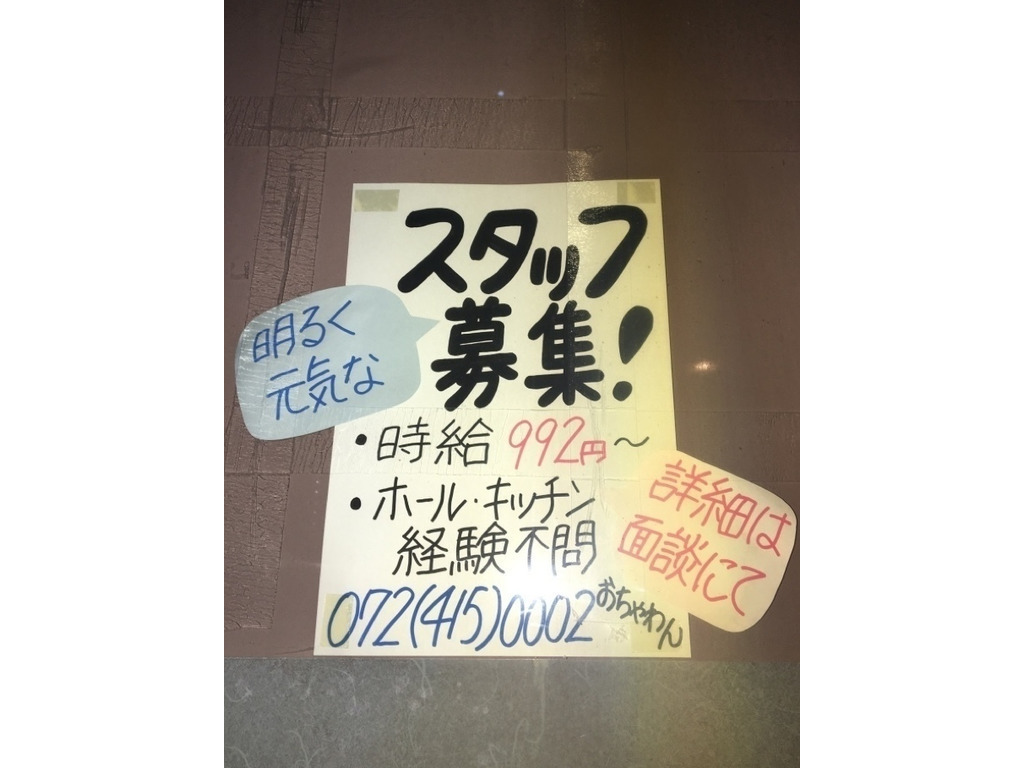 スタッフ
募集!
明るく
元気な
・時給 992円〜
・ホール・キッチン
経験不問
詳細は
面談にて
072(415)0002
おちゃわん